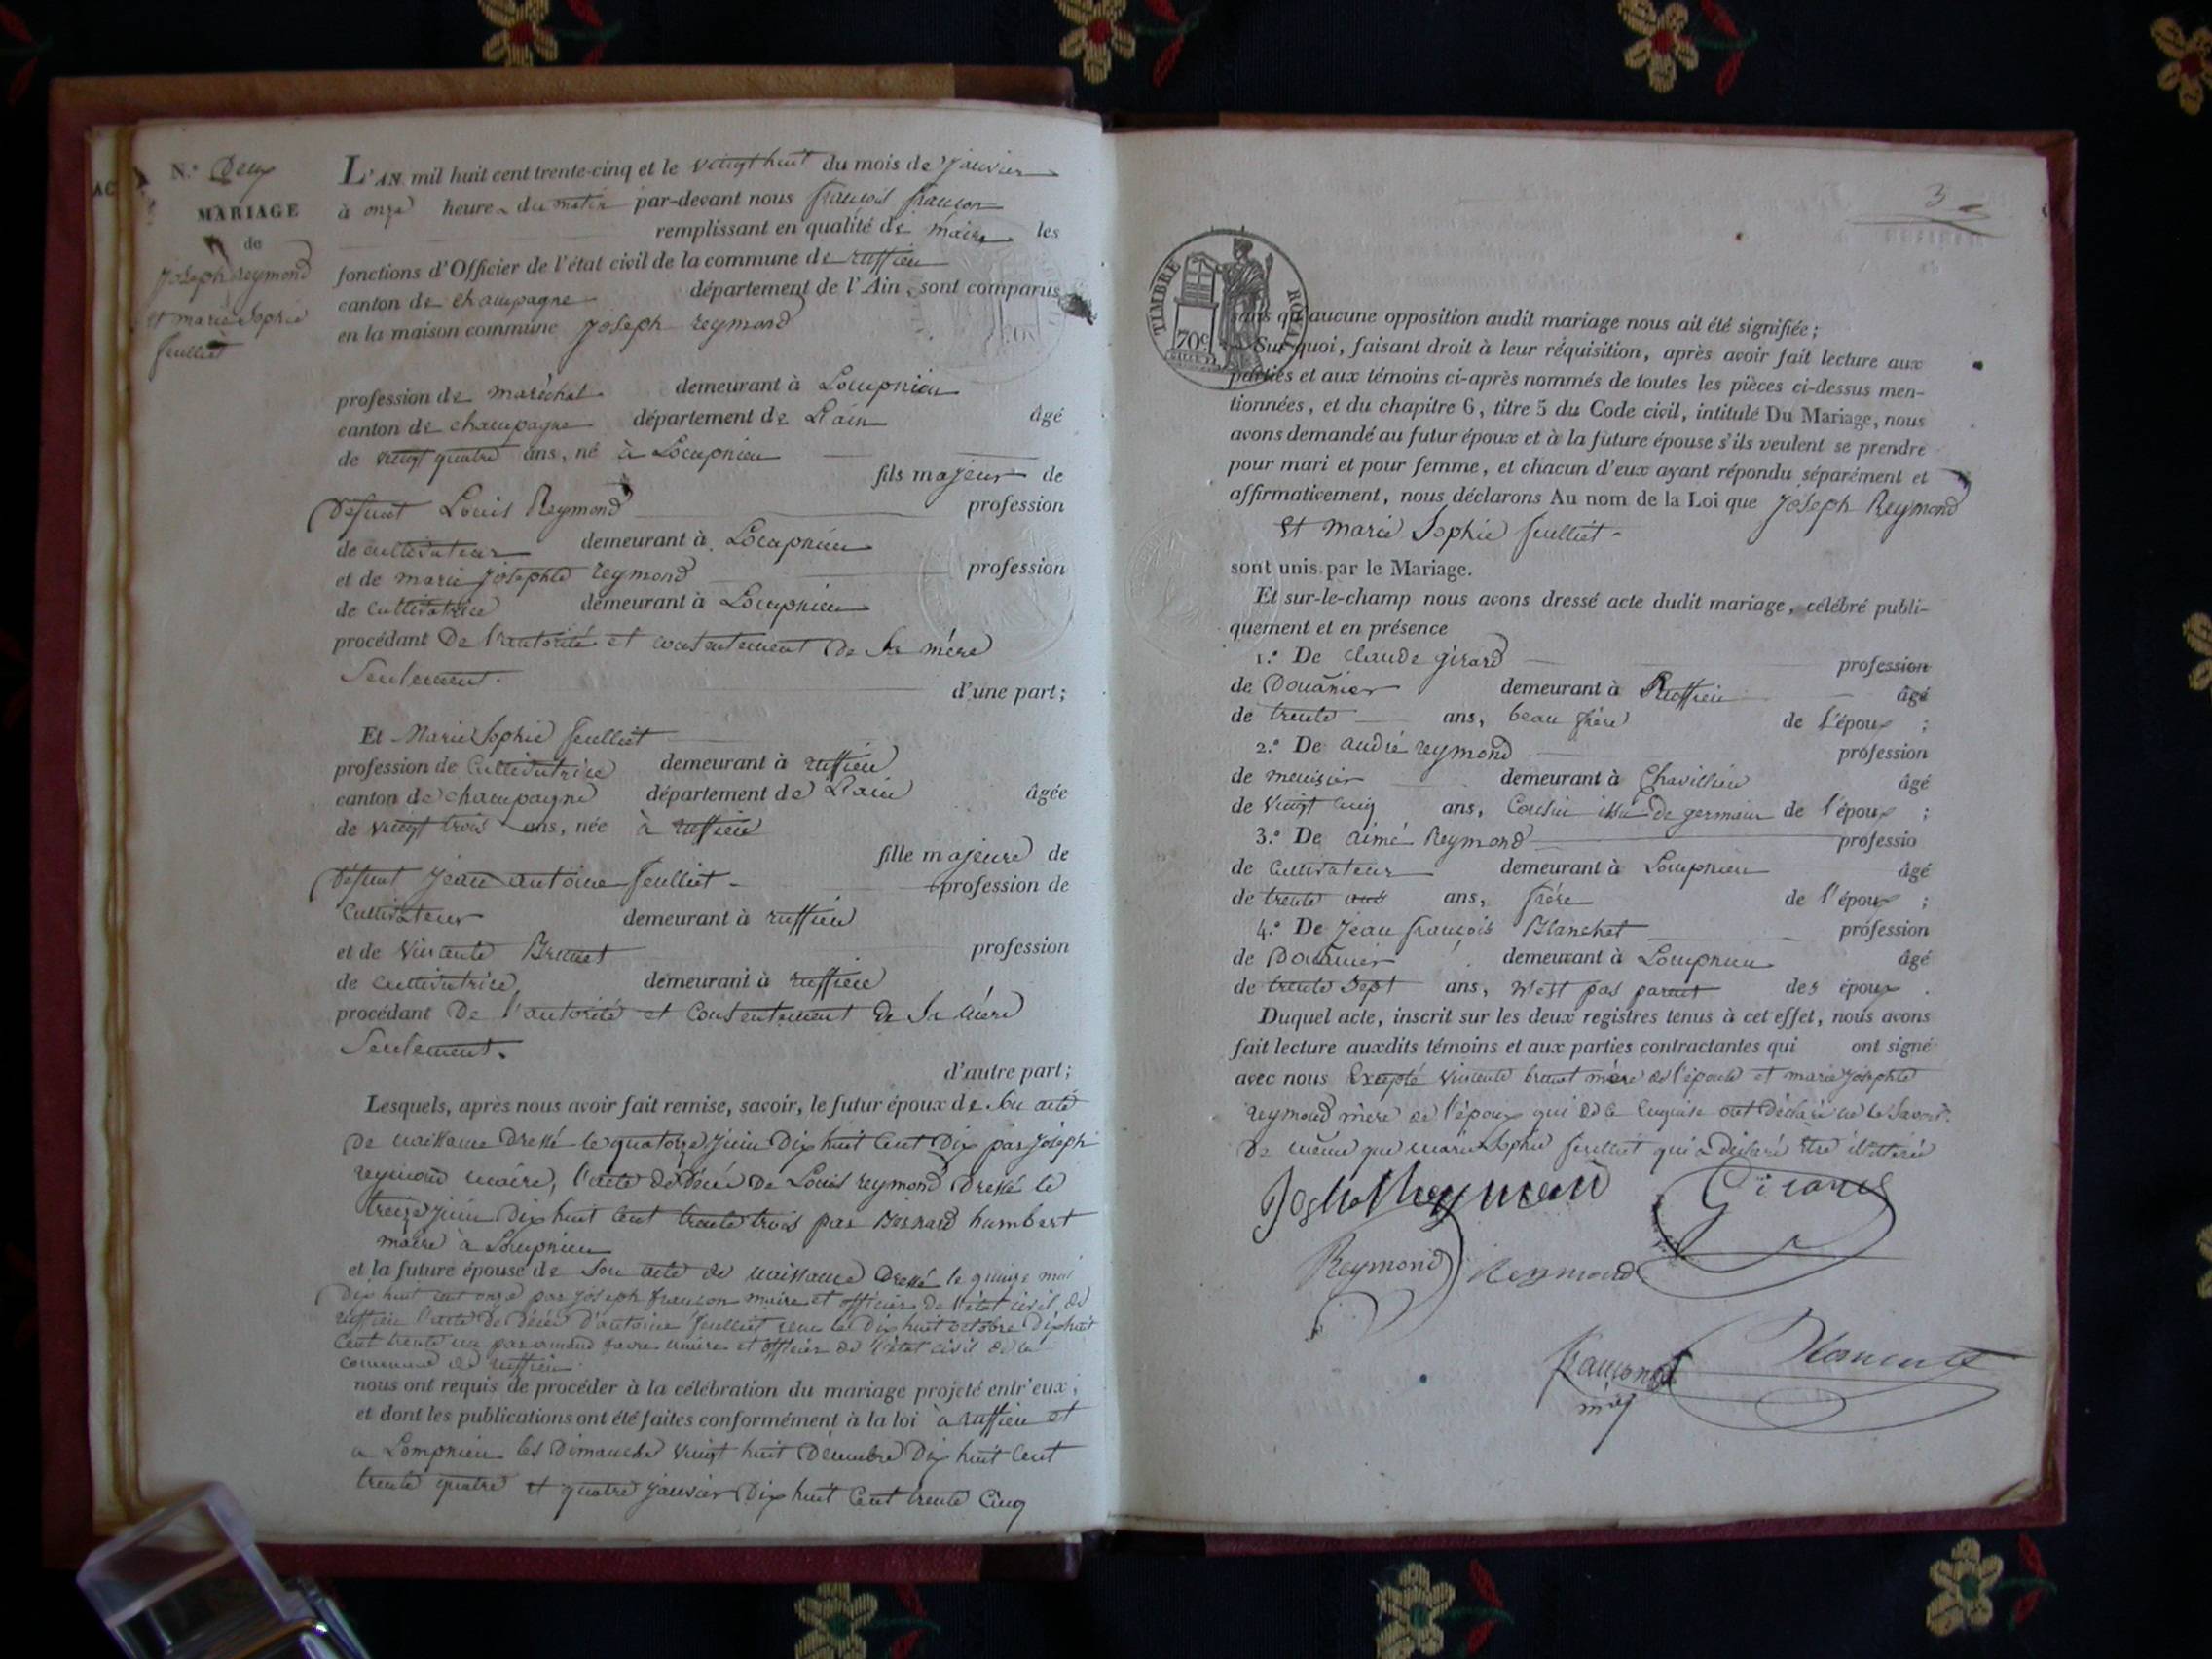 N.° Deux
MARIAGE
de
joseph reymond
et marie Sophie
feulliet
L'AN mil huit cent trente-cinq et le vingt huit du mois de janvier
à onze heures du matin par-devant nous françois françon
remplissant en qualité de maire les
fonctions d'Officier de l'état civil de la commune de ruffieu
canton de champagne département de l'Ain, sont comparus
en la maison commune joseph reymond
profession de maréchal demeurant à Lompnieu
canton de champagne département de L'ain âgé
de vingt quatre ans, né à Lompnieu
fils majeur de
Defunt Louis Reymond profession
de cultivateur demeurant à Lompnieu
et de marie josephte reymond profession
de cultivatrice demeurant à Lompnieu
procédant De l'autorité et consentement De Sa mére
Seulement. d'une part;
Et Marie Sophie feulliet
profession de Cultivatrice demeurant à ruffieu
canton de champagne département de L'ain âgée
de vingt trois ans, née à ruffieu
fille majeure de
Défunt jean antoine feulliet profession de
Cultivateur demeurant à ruffieu
et de Vincente Brunet profession
de cultivatrice demeurant à ruffieu
procédant De l'autorité et Consentement de Sa mére
Seulement.
d'autre part;
Lesquels, après nous avoir fait remise, savoir, le futur époux de Son acte
De naissance Dressé le quatorze juin Dix huit Cent Dix par joseph
reymond maire, l'acte de Décé De Louis reymond Dressé le
treize juin Dix huit Cent trente trois par Bernard humbert
maire à Lompnieu
et la future épouse de Son acte de naissance Dressé le quinze mai
Dix huit cent onze par joseph françon maire et officier de l'état civil de
ruffieu l'acte De Décé D'antoine feulliet reçu le Dix huit octobre Dix huit
Cent trente un par armand favre maire et officier de l'état civil de la
commune de ruffieu
nous ont requis de procéder à la célébration du mariage projeté entr'eux;
et dont les publications ont été faites conformément à la loi à ruffieu et
a Lompnieu les Dimanche vingt huit Décembre Dix huit Cent
trente quatre et quatre janvier Dix huit Cent trente Cinq
3
TIMBRE ROYAL
70c
sans qu'aucune opposition audit mariage nous ait été signifiée;
Sur quoi, faisant droit à leur réquisition, après avoir fait lecture aux
parties et aux témoins ci-après nommés de toutes les pièces ci-dessus men-
tionnées, et du chapitre 6, titre 5 du Code civil, intitulé Du Mariage, nous
avons demandé au futur époux et à la future épouse s'ils veulent se prendre
pour mari et pour femme, et chacun d'eux ayant répondu séparément et
affirmativement, nous déclarons Au nom de la Loi que Joseph Reymond
et marie Sophie feulliet
sont unis par le Mariage.
Et sur-le-champ nous avons dressé acte dudit mariage, célébré publi-
quement et en présence
1.° De claude girard profession
de Douanier demeurant à Ruffieu âgé
de trente ans, beau frère de l'époux ;
2.° De andré reymond profession
de menisier demeurant à Chavillieu âgé
de Vingt cinq ans, Cousin issu de germain de l'époux ;
3.° De aimé Reymond professio
de Cultivateur demeurant à Lompnieu âgé
de trente ans ans, frère de l'époux ;
4.° De jean françois Blanchet profession
de Douanier demeurant à Lompnieu âgé
de trente Sept ans, n'est pas parent des époux .
Duquel acte, inscrit sur les deux registres tenus à cet effet, nous avons
fait lecture auxdits témoins et aux parties contractantes qui ont signé
avec nous Excepté vincente brunet mère de l'épouse et marie josephte
reymond mere de l'époux qui de ce enquise ont déclaré ne le Savoir.
De même que marie Sophie feulliet qui a Déclaré être illettrée
Joseph Reymond Girard
Reymond Reymond
françon
Blanchet